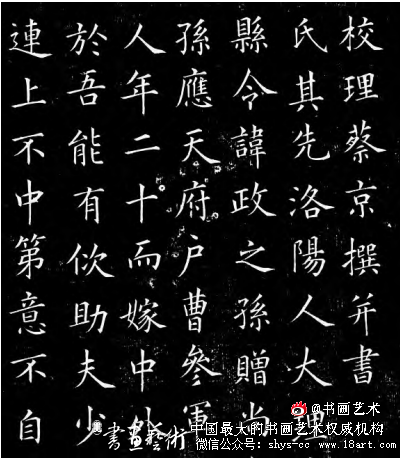 校理蔡京撰并書
氏其先洛陽人大理
縣令諱政之孫贈尚
孫應天府户曹參軍
人年二十而嫁中外
於吾能有佽助夫少
連上不中第意不自
@书画艺术
書畫藝術
中国最大的书画艺术权威机构
微信公众号：shys-cc www.18art.com